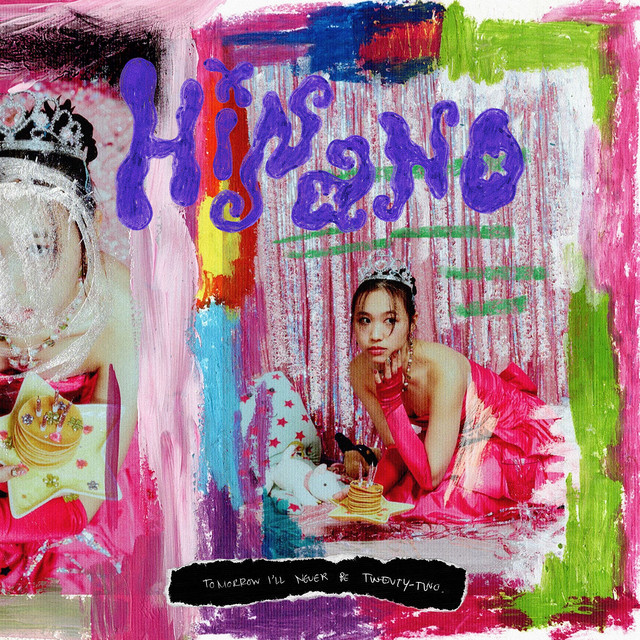 HiNaNO
TOMORROW I'LL NEVER BE TWENTY-TWO.